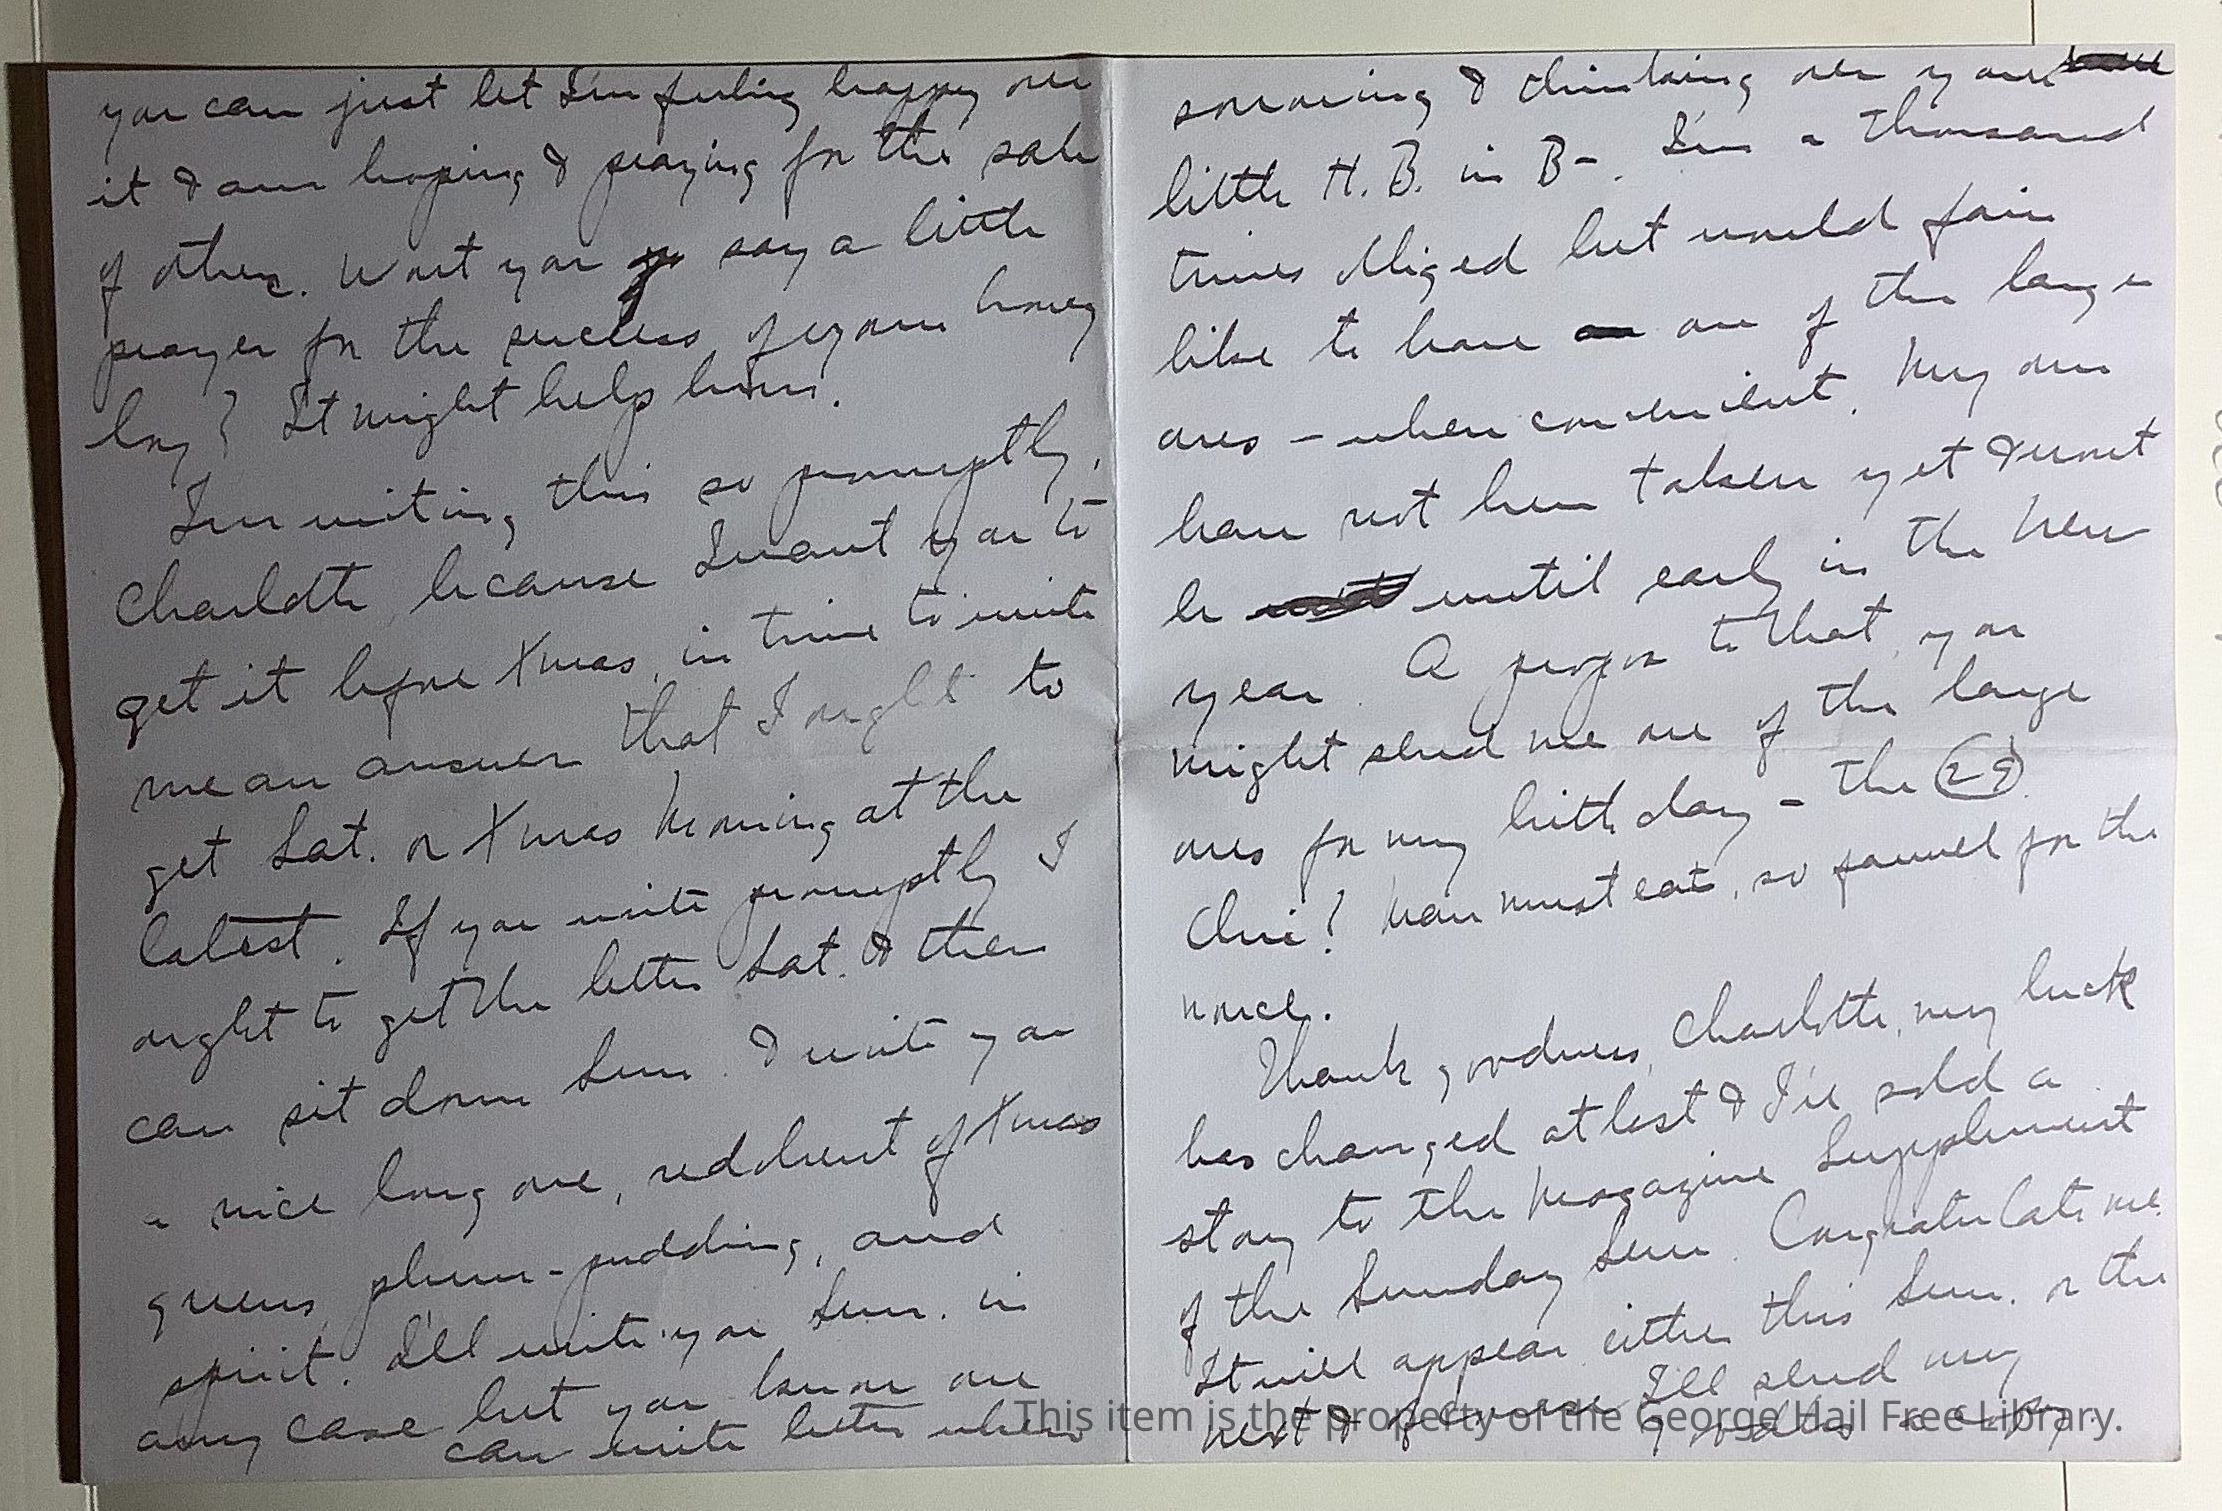 you can just bet I'm feeling happy over
it & am hoping & praying for the sale
of others. Wont you say a little
prayer for the success of your honey
boy? It might help him.
I'm writing this so promptly,
Charlotte, because I want you to
get it before Xmas, in time to write
me an answer that I ought to
get Sat. or Xmas Morning at the
latest. If you write promptly I
ought to get the letter Sat. & then
can sit down Sun. & write you
a nice long one, redolent of Xmas
greens, plum-pudding, and
spirit. I'll write you Sun. in
any case but you know one
can write better when
sorrowing & over your
little H. B. in B-. I'm a thousand
times obliged but would fain
like to have one of the large
ones - when convenient. My own
have not been taken yet & wont
be until early in the New
year. A propos to that, you
might send me one of the large
ones for my birthday - the 29.
Man must eat, so farewel for the
nonce.
Thank goodness, Charlotte, my luck
has changed at last & I've sold a
story to the Magazine Supplement
of the Sunday Sun. Congratulate me.
It will appear either this Sun. or the
next & of course I'll send my
goddess a copy.
This item is the property of the George Hail Free Library.